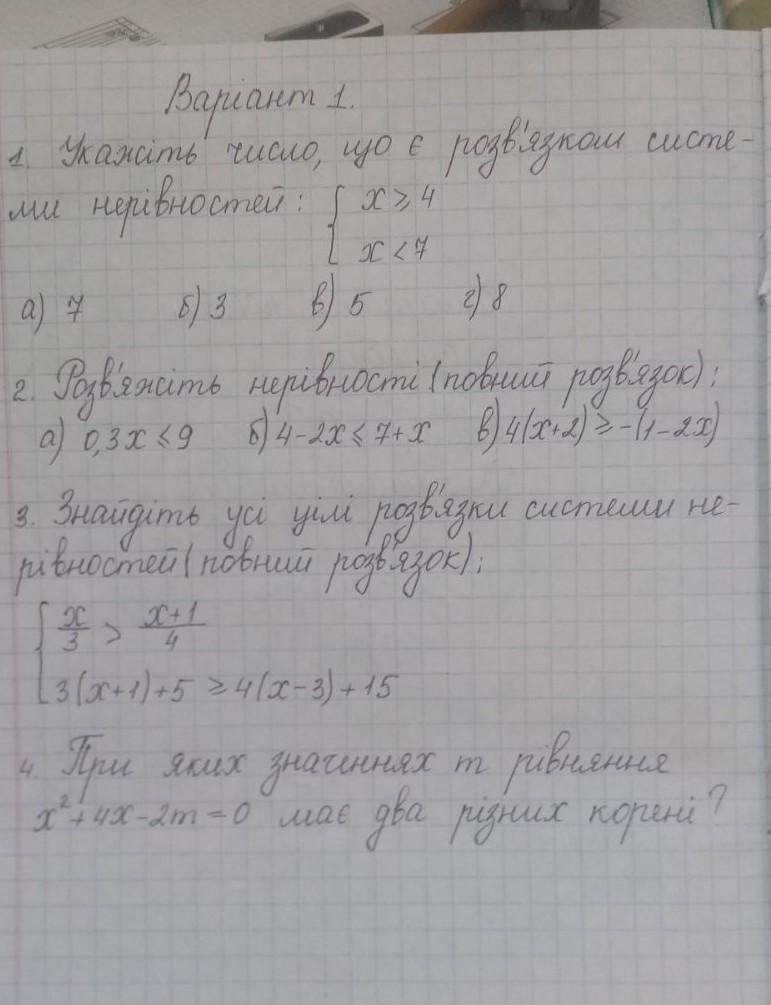 Варіант 1.
1. Укажіть число, що є розв'язком систе-
ми нерівностей: { x ⩾ 4
x < 7
а) 7 б) 3 в) 5 г) 8
2. Розв'яжіть нерівності (повний розв'язок):
а) 0,3x ⩽ 9 б) 4-2x ⩽ 7+x в) 4(x+2) ⩾ -(1-2x)
3. Знайдіть усі цілі розв'язки системи не-
рівностей (повний розв'язок):
{ x/3 > (x+1)/4
3(x+1)+5 ⩾ 4(x-3)+15
4. При яких значеннях m рівняння
x²+4x-2m=0 має два різних корені?